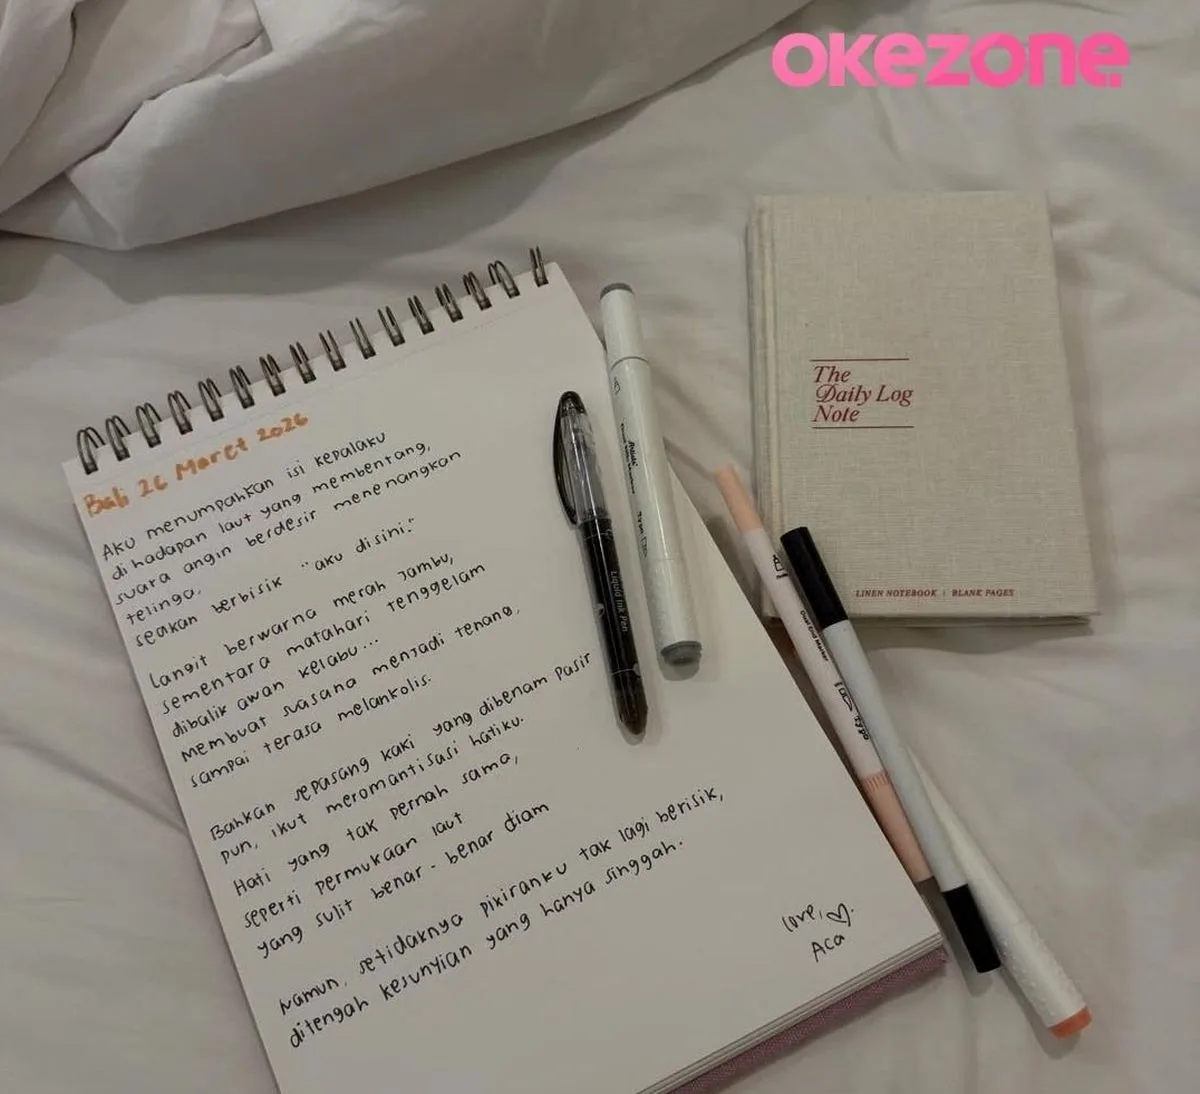 OKEZONE
Bali 26 Maret 2026
Aku menumpahkan isi kepalaku
dihadapan laut yang membentang,
suara angin berdesir menenangkan
telinga,
seakan berbisik "aku disini."
Langit berwarna merah jambu,
sementara matahari tenggelam
dibalik awan kelabu...
Membuat suasana menjadi tenang,
sampai terasa melankolis.
Bahkan sepasang kaki yang dibenam pasir
pun, ikut meromantisasi hatiku.
Hati yang tak pernah sama,
seperti permukaan laut
yang sulit benar-benar diam
Namun, setidaknya pikiranku tak lagi berisik,
ditengah kesunyian yang hanya singgah.
love, ♡.
Aca
Liquid Ink Pen
Dual End Marker
The
Daily Log
Note
LINEN NOTEBOOK | BLANK PAGES